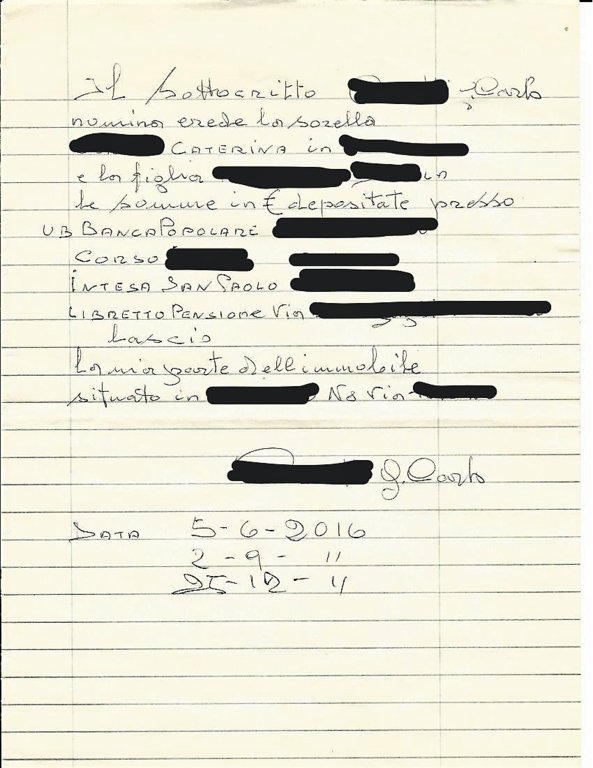 Il sottoscritto G. Carlo
nomina erede la sorella
CATERINA in
e la figlia in
le somme in € depositate presso
UB BANCA POPOLARE
CORSO
INTESA SAN PAOLO
LIBRETTO PENSIONE Via
Lascio
la mia parte dell'immobile
situato in No Via
G. Carlo
DATA 5-6-2016
2-9- "
25-12- "